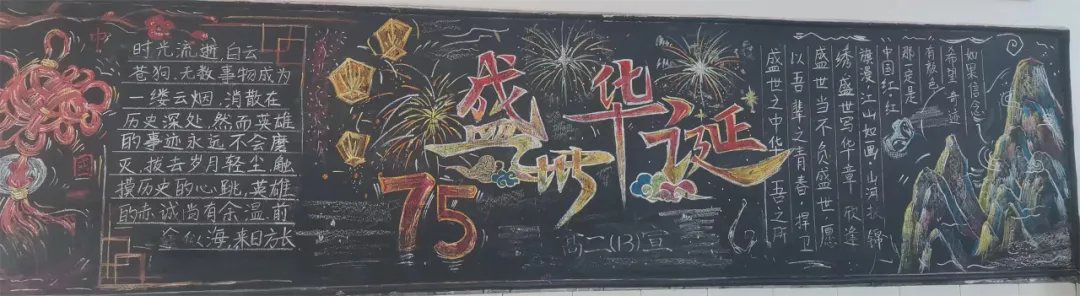 中
国
时光流逝,白云
苍狗,无数事物成为
一缕云烟,消散在
历史深处,然而英雄
的事迹永远不会磨
灭,拔去岁月轻尘,触
摸历史的心跳,英雄
的赤诚尚有余温,前
途似海,来日方长
盛世华诞
75
高二(13)宣
如果信念
希望奇迹
有颜色
那定是
中国红,红
旗漫,江山如画,山河锦
绣,盛世写华章,欣逢
盛世当不负盛世,愿
以吾辈之青春,捍卫
盛世之中华,吾之所